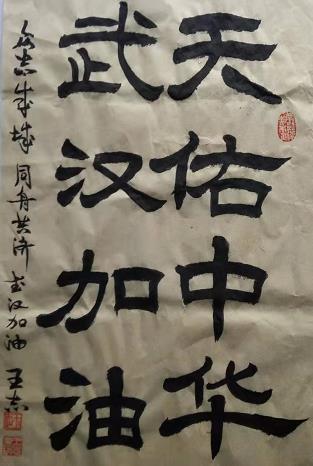 天佑中华
武汉加油
众志成城 同舟共济 武汉加油 王志